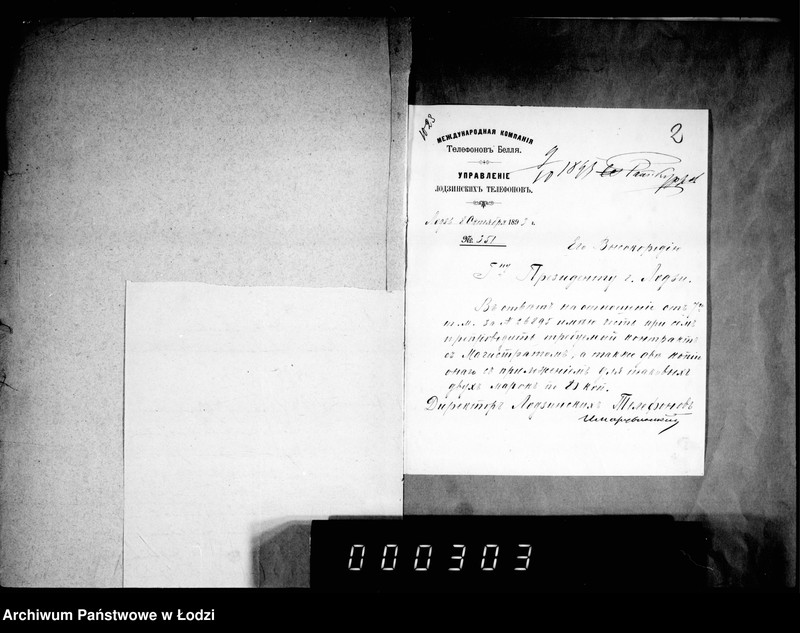 1023
2
МЕЖДУНАРОДНАЯ КОМПАНІЯ
Телефоновъ Белля.
УПРАВЛЕНІЕ
ЛОДЗИНСКИХЪ ТЕЛЕФОНОВЪ.
9/10 1895
Лодзь 8 Октября 1895 г.
№ 351
Его Высокородію
Г-ну Президенту г. Лодзи.
Въ отвѣтъ на отношеніе отъ
т. м. за № 26895 имѣю честь при семъ
препроводить требуемый контрактъ
съ Магистратомъ, а также двѣ копіи
онаго съ приложеніемъ для таковыхъ
двухъ марокъ по коп.
Директоръ Лодзинскихъ Телефоновъ
000303
Archiwum Państwowe w Łodzi